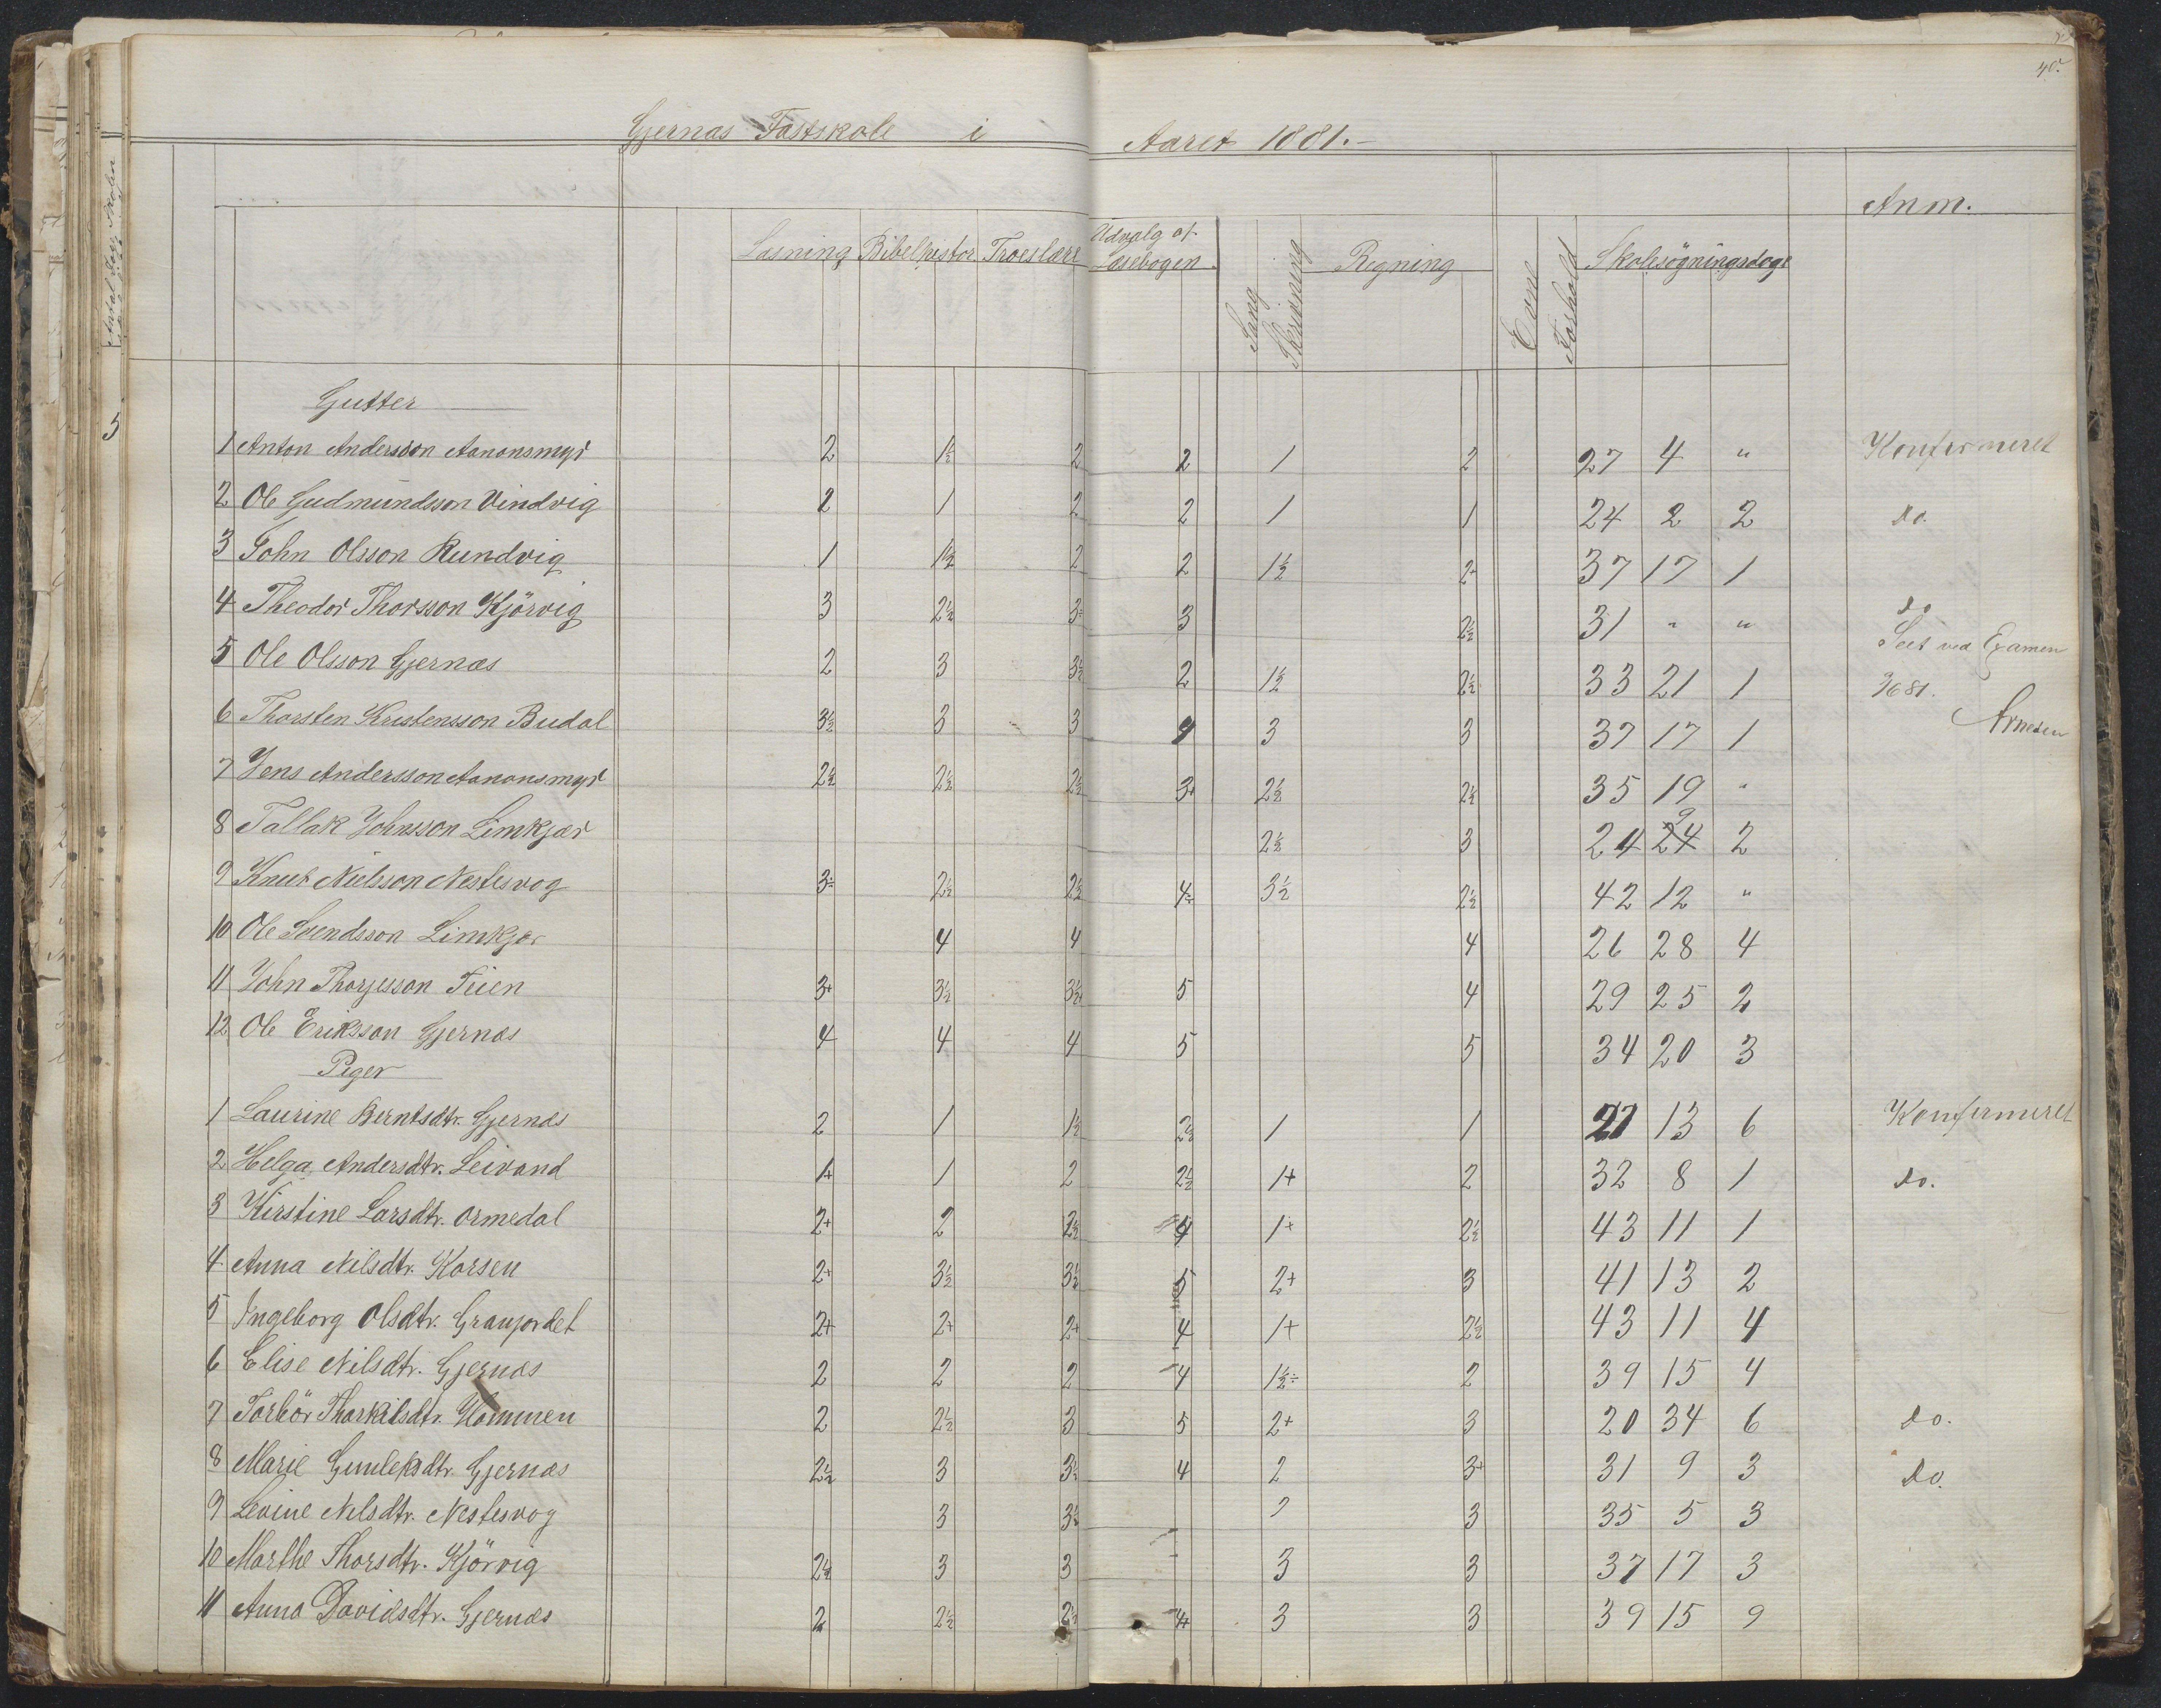 40.
Gjernæs Fastskole i Aaret 1881.-
Anm.
Læsning Bibelhistor Troeslære Udvalg af Læsebogen Sang Skrivning Regning Evne Forhold Skolesøgningsdage
Antal Dage Skolen
5
Gutter
1 Anton Andersson Aanonsmyr 2 1½ 2 2 1 2 27 4 " Konfirmeret
2 Ole Gudmundsson Vindvig 2 1 2 2 1 1 24 2 2 do.
3 John Olsson Rundvig 1 1½ 2 2 1½ 2+ 37 17 1
4 Theodor Thorsson Kjörvig 3 2½ 3÷ 3 2½ 31 " " do
5 Ole Olsson Gjernæs 2 3 3½ 2 1½ 2½ 33 21 1 Seet ved Examen
6 Thorsten Kristensson Budal 3½ 3 3 4 3 3 37 17 1 Arnesen
7 Jens Andersson Aanonsmyr 2½ 2½ 2½ 3+ 2½ 2½ 35 19 "
8 Tallak Johnsson Limkjær 2½ 3 24 9 2
9 Knut Nielsson Nestesvog 3÷ 2½ 2½ 4÷ 3½ 2½ 42 12 "
10 Ole Svendsson Limkjær 4 4 4 26 28 4
11 John Thorjesson Tüen 3+ 3½ 3½ 5 4 29 25 2
12 Ole Eriksson Gjernæs 4 4 4 5 5 34 20 3
Piger
1 Laurine Berntsdtr. Gjernæs 2 1 1½ 2½ 1 1 27 13 6 Konfirmeret
2 Helga Andersdtr. Leivand 1+ 1 2 2½ 1+ 2 32 8 1 do.
3 Kirstine Larsdtr. Ormedal 2+ 2 2½ 4 1+ 2½ 43 11 1
4 Anna Nilsdtr. Korsen 2+ 3½ 3½ 5 2+ 3 41 13 2
5 Ingeborg Olsdtr. Granjordet 2+ 2+ 2+ 4 1+ 2½ 43 11 4
6 Elise Nilsdtr. Gjernæs 2 2 2 4 1½÷ 2 39 15 4
7 Torbör Thorkilsdtr. Hommen 2 2½ 3 5 2+ 3 20 34 6 do.
8 Marie Gunleksdtr. Gjernæs 2½ 3 3½ 4 2 3+ 31 9 3 do.
9 Levine Nilsdtr. Nestesvog 3 3½ 2 3 35 5 3
10 Marthe Thorsdtr. Kjörvig 2½ 3 3 - 3 3 37 17 3
11 Anna Davidsdtr. Gjernæs 2 2½ 2½ 4+ 3 3 39 15 9